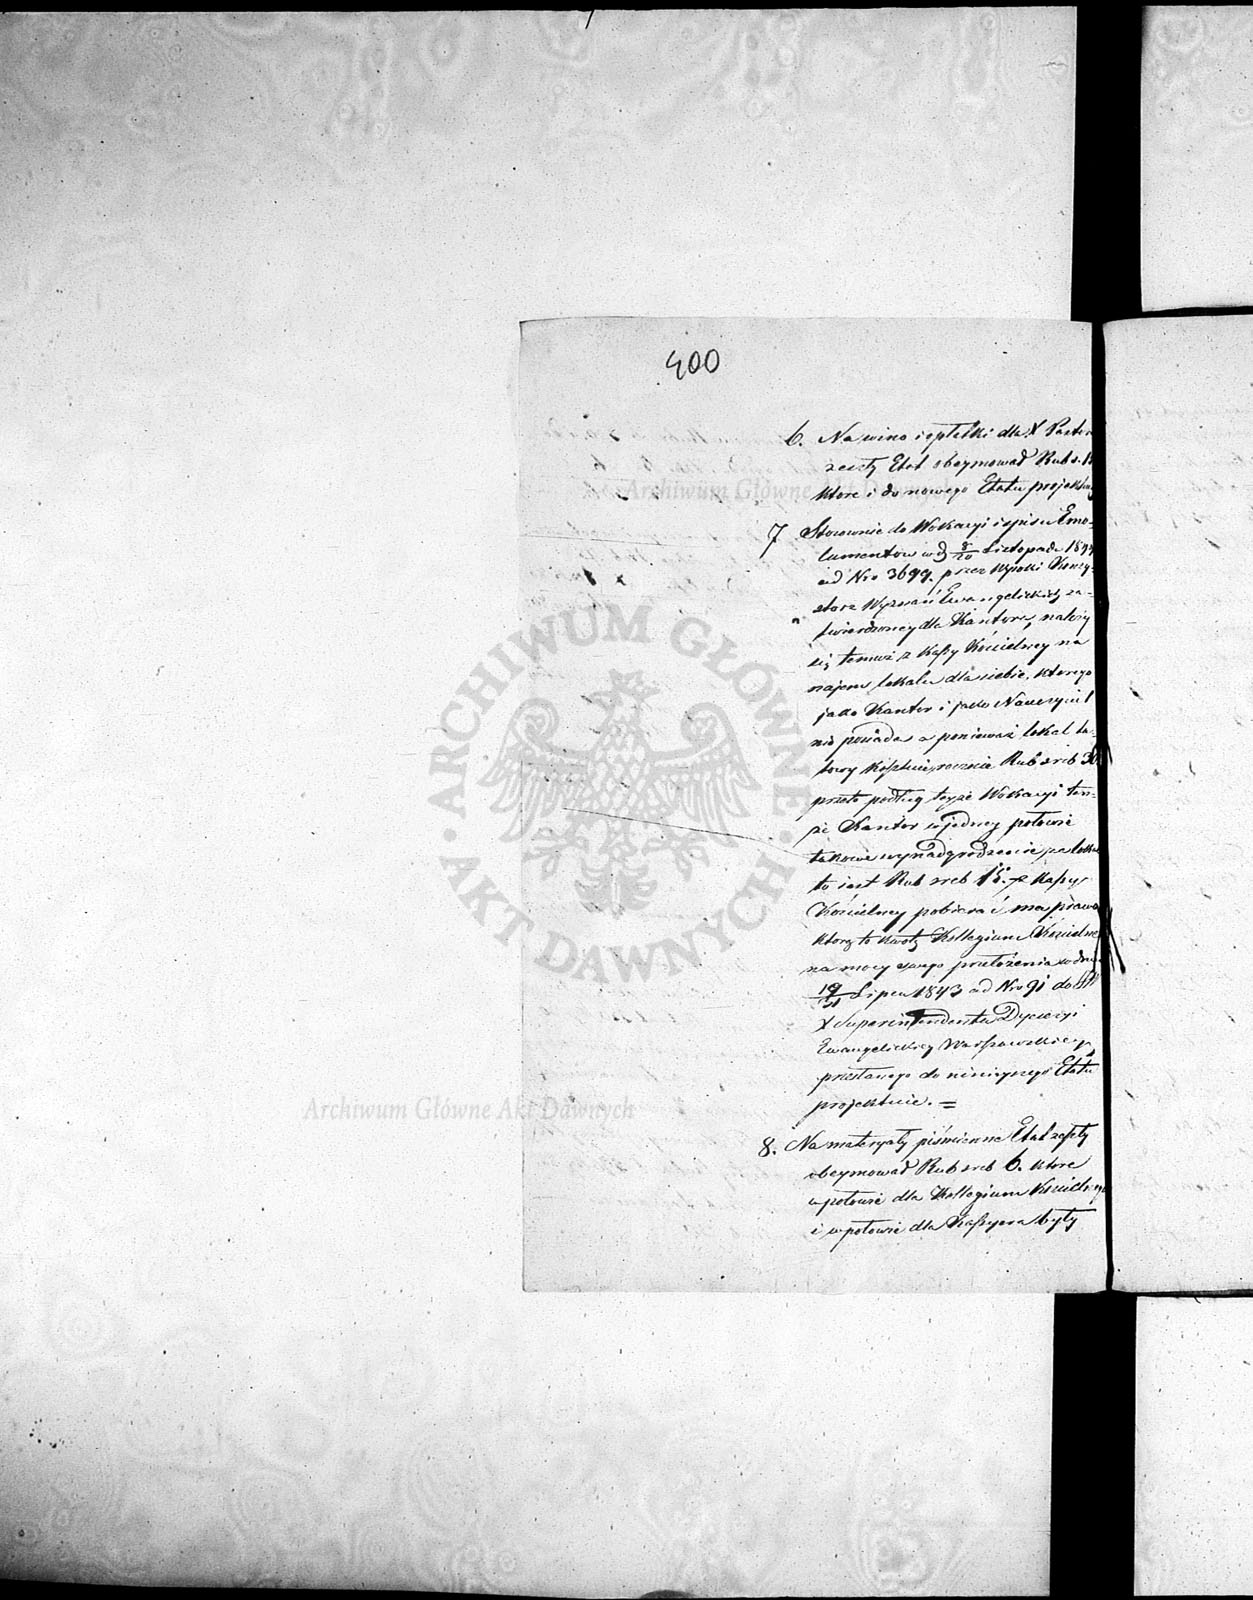 400
6. Na wino i opłatki dla X Pastora
zeszły Etat obeymował Rub s. 1
które i do nowego Etatu projektuią
7 Stosownie do Wokacyi i spisu Emo-
lumentów w d 8/20 Listopada 184
ad Nro 3699. przez Wysoki Konsy-
storz Wyznań Ewangelickich za-
twierdzoney dla Kantora, należy
się temuż z Kassy Kościelney na
najem lokalu dla siebie, którego
jako Kantor i jako Nauczyciel
nie posiada, a ponieważ lokal ta-
kowy kosztuie rocznie Rub sreb 30
przeto podług teyże Wokacyi ten-
że Kantor w jedney połowie
takowe wynadgrodzenie za lokal
to iest Rub sreb 15. z Kassy
Kościelney pobiera i ma prawo
którą to kwotę Kollegium Kościelne
na mocy swego przełożenia w dniu
19/31 Lipca 1843 ad Nro 91 do
X Superintendenta Dyecezyi
Ewangelickiey Warszawskiey
przesłanego do niniejszego Etatu
projektuie. =
8. Na materyały piśmienne Etat zeszły
obeymował Rub sreb 6. które
w połowie dla Kollegium Kościelnego
i w połowie dla Kassyera były
ARCHIWUM GŁÓWNE
AKT DAWNYCH
Archiwum Główne Akt Dawnych
Archiwum Główne Akt Dawnych